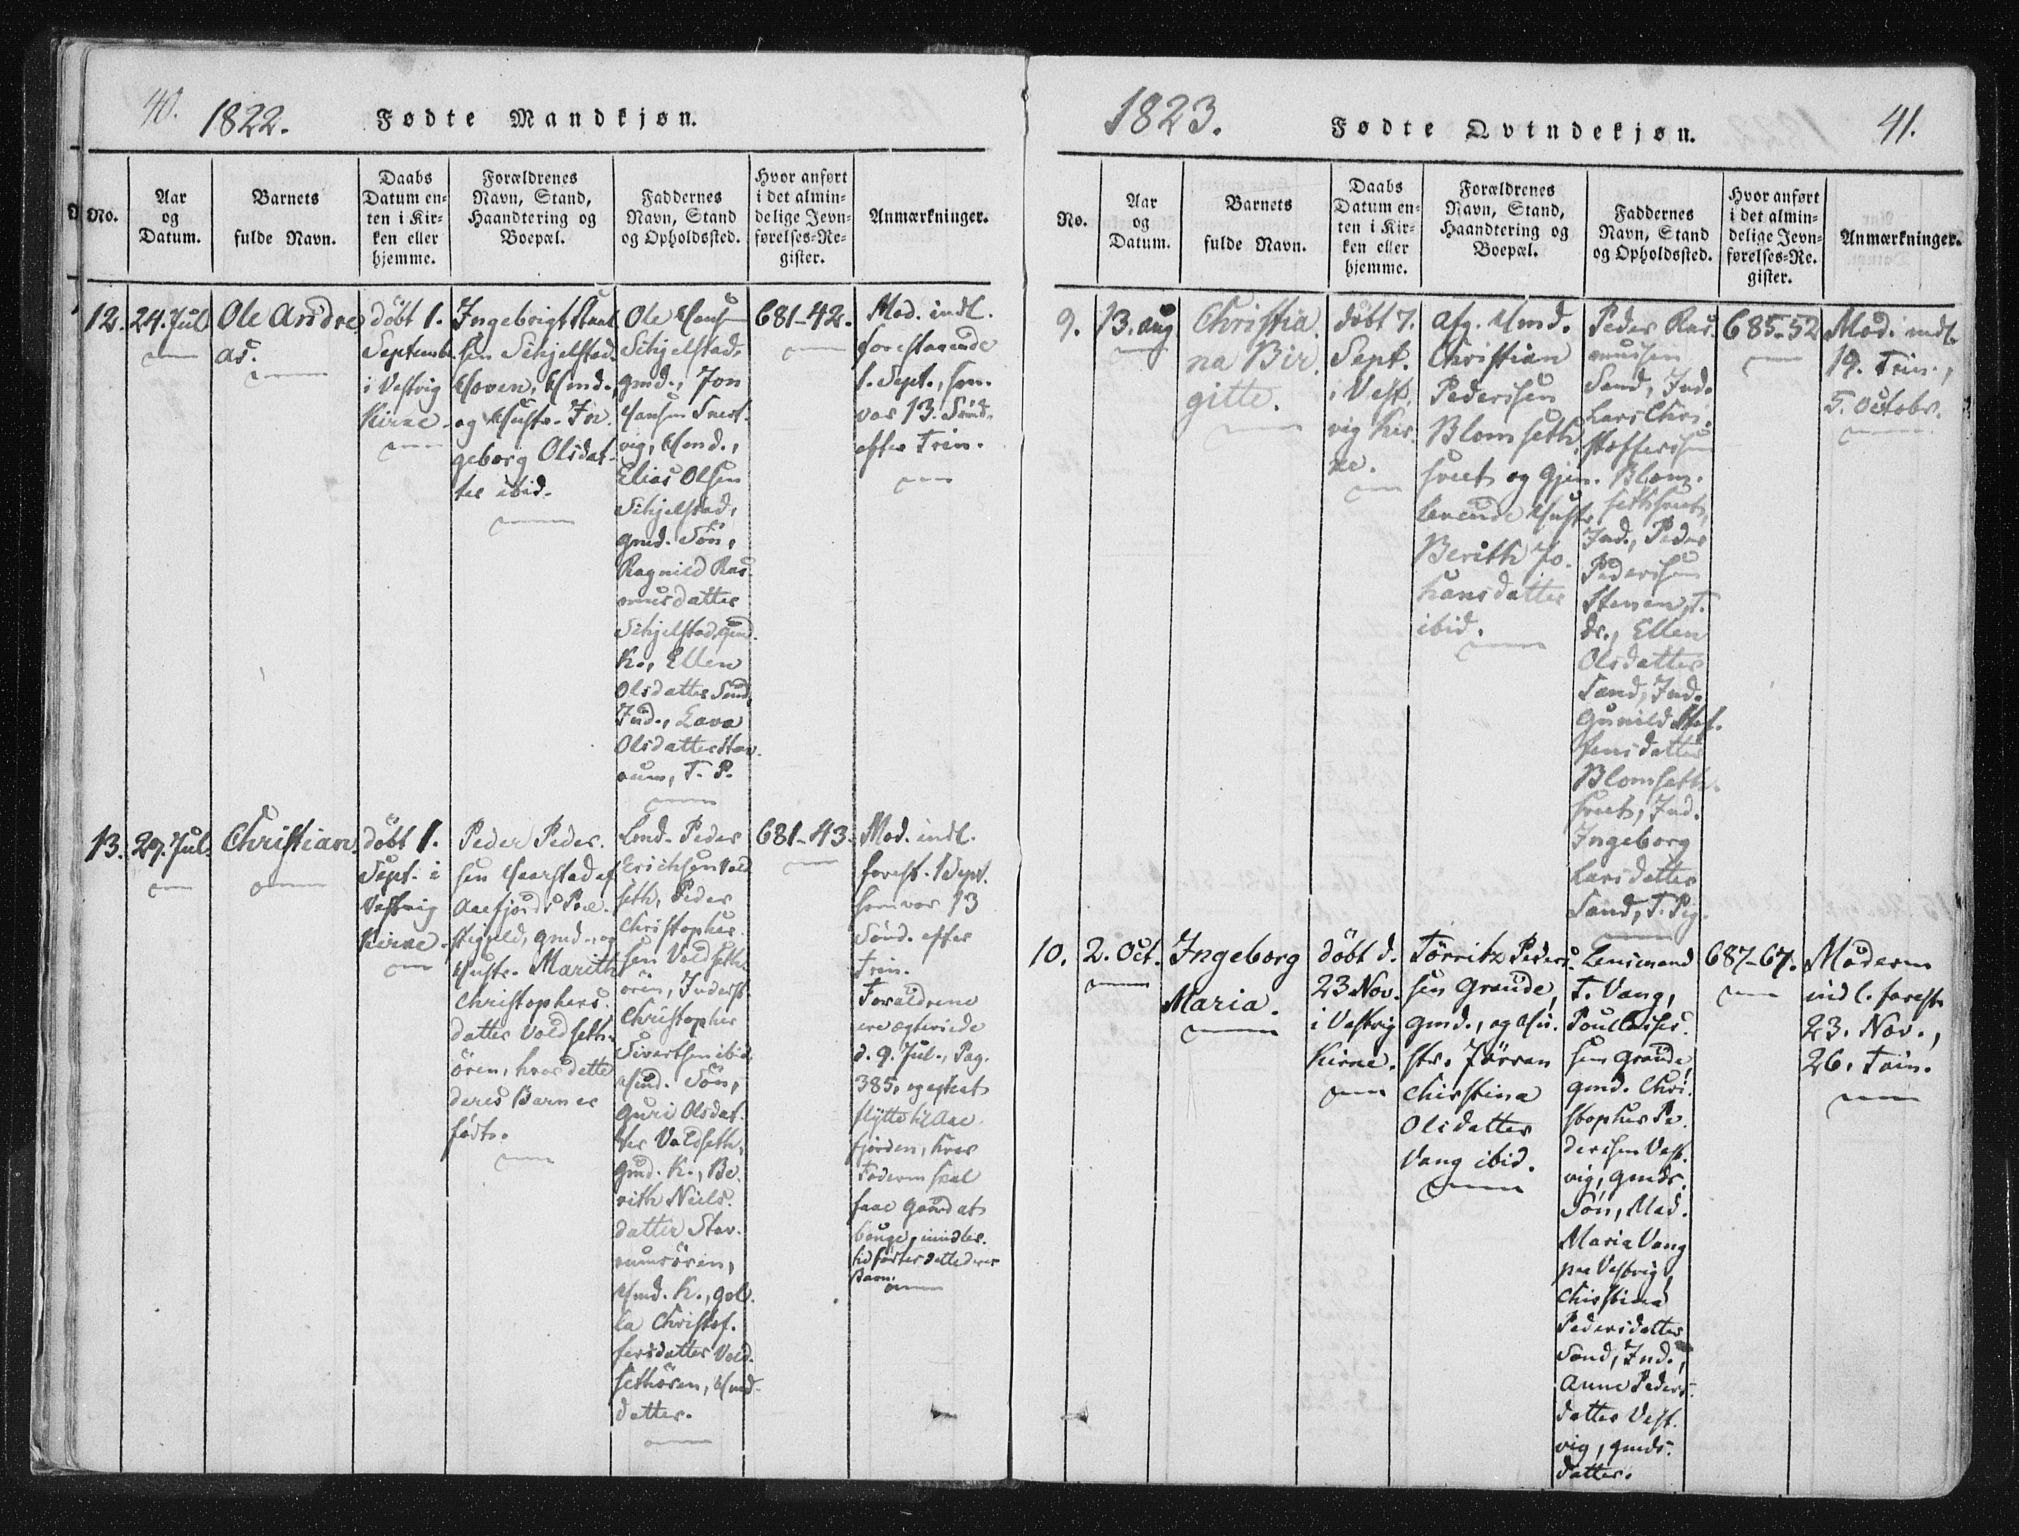 40. 1822. Fødte Mandkjøn.
No.
Aar
og
Datum.
Barnets
fulde Navn.
Daabs
Datum en-
ten i Kir-
ken eller
hjemme.
Forældrenes
Navn, Stand,
Haandtering og
Boepæl.
Faddernes
Navn, Stand
og Opholdssted.
Hvor anført
i det almin-
delige Jevn-
førelses-Re-
gister.
Anmærkninger.
12.
24. Jul.
Ole Andre
as.
døbt 1.
Septembr.
i Vestvig
Kirke.
Ingebrigt
sen Sehjelstad
og Hustr. In
geborg Olsdat
ter ibid.
Ole Hansen
Sehjelstad,
gmd., Jon
Hansen
vig, Hmd.,
Elias Olsen
Sehjelstad,
gmd. Søn,
Ragnild Ras-
musdatter
Sehjelstad, gmd.
K., Ellen
Olsdatter Sand,
Ind., Lava
Olsdatter Stav-
rum, T. P.
681-42.
Mod. indl.
forestaaende
1. Sept., som
var 13. Sønd.
efter Trin.
13.
29. Jul.
Christian.
døbt 1.
Sept. i
Vestvig
Kirke.
Peder Peder-
sen Haarstad af
Aaefjords Præ-
stegield, gmd., og
Hustr. Marith
Christophers-
datter Voldseth-
ören, hvor dette
deres Barn er
født.
Lmd. Peder
Erichsen Vold
seth, Peder
Christopher-
sen Voldseth-
ören, Inderst,
Christopher
Sivertsen ibid.
Hmd. Søn,
Guri Olsdat-
ter Voldseth,
gmd. K., Be-
rith Niels-
datter Stav-
rumsören,
Hmd. K., Gol-
la Christof-
fersdatter Vold-
sethören, Hmd-
datter.
681-43.
Mod. indl.
forest. 1 Sept.
som var 13
Sönd. efter
Trin.
Forældrene
ere ægteviede
d. 9. Jul., Pag.
385, og agtede at
flytte til Aae-
fjorden, hvor
Faderen skal
faae Gaard at
bruge, imidler-
tid födtes dette deres
Barn.
1823. Fødte Qvindekjøn. 41.
No.
Aar
og
Datum.
Barnets
fulde Navn.
Daabs
Datum en-
ten i Kir-
ken eller
hjemme.
Forældrenes
Navn, Stand,
Haandtering og
Boepæl.
Faddernes
Navn, Stand
og Opholdssted.
Hvor anført
i det almin-
delige Jevn-
førelses-Re-
gister.
Anmærkninger.
9.
13. Aug
Christia
na Bir
gitte.
døbt 7.
Sept.
i Vest
vig Kir
ke.
Afg. Hmd.
Christian
Pedersen
Blomseth
sveet og gjen-
levende Hustr.
Berith Jo-
hansdatter
ibid.
Peder Ras-
mussen
Sand, Ind.
Lars Chri-
stoffersen
Blom-
sethsveet,
Ind., Peder
Pedersen
Stenen, T.
dr., Ellen
Olsdatter
Sand, Ind.
Gunild Stef-
fensdatter
Blomseth-
sveet, Ind.
Ingeborg
Larsdatter
Sand, T. Pig.
685-52
Mod. indl.
19. Trin.,
5. Octobr.
10.
2. Oct.
Ingeborg
Maria.
døbt d.
23 Nov.
i Vestvig
Kirke.
Törritz Peder-
sen Grande,
gmd., og Hu-
str. Jörran
Christina
Olsdatter
Vang ibid.
Lensmand
T. Vang,
Poul
sen Grande,
gmd. Chri-
stopher Pe-
dersen Vest-
vig, gmds.
Søn, Mad.
Maria Vang
paa Vestvig,
Christina
Pedersdatter
Sand, Ind.,
Anne Peders-
datter Vest-
vig, gmds.
datter.
687-67.
Moderen
indl. forest.
23. Nov.,
26. Trin.